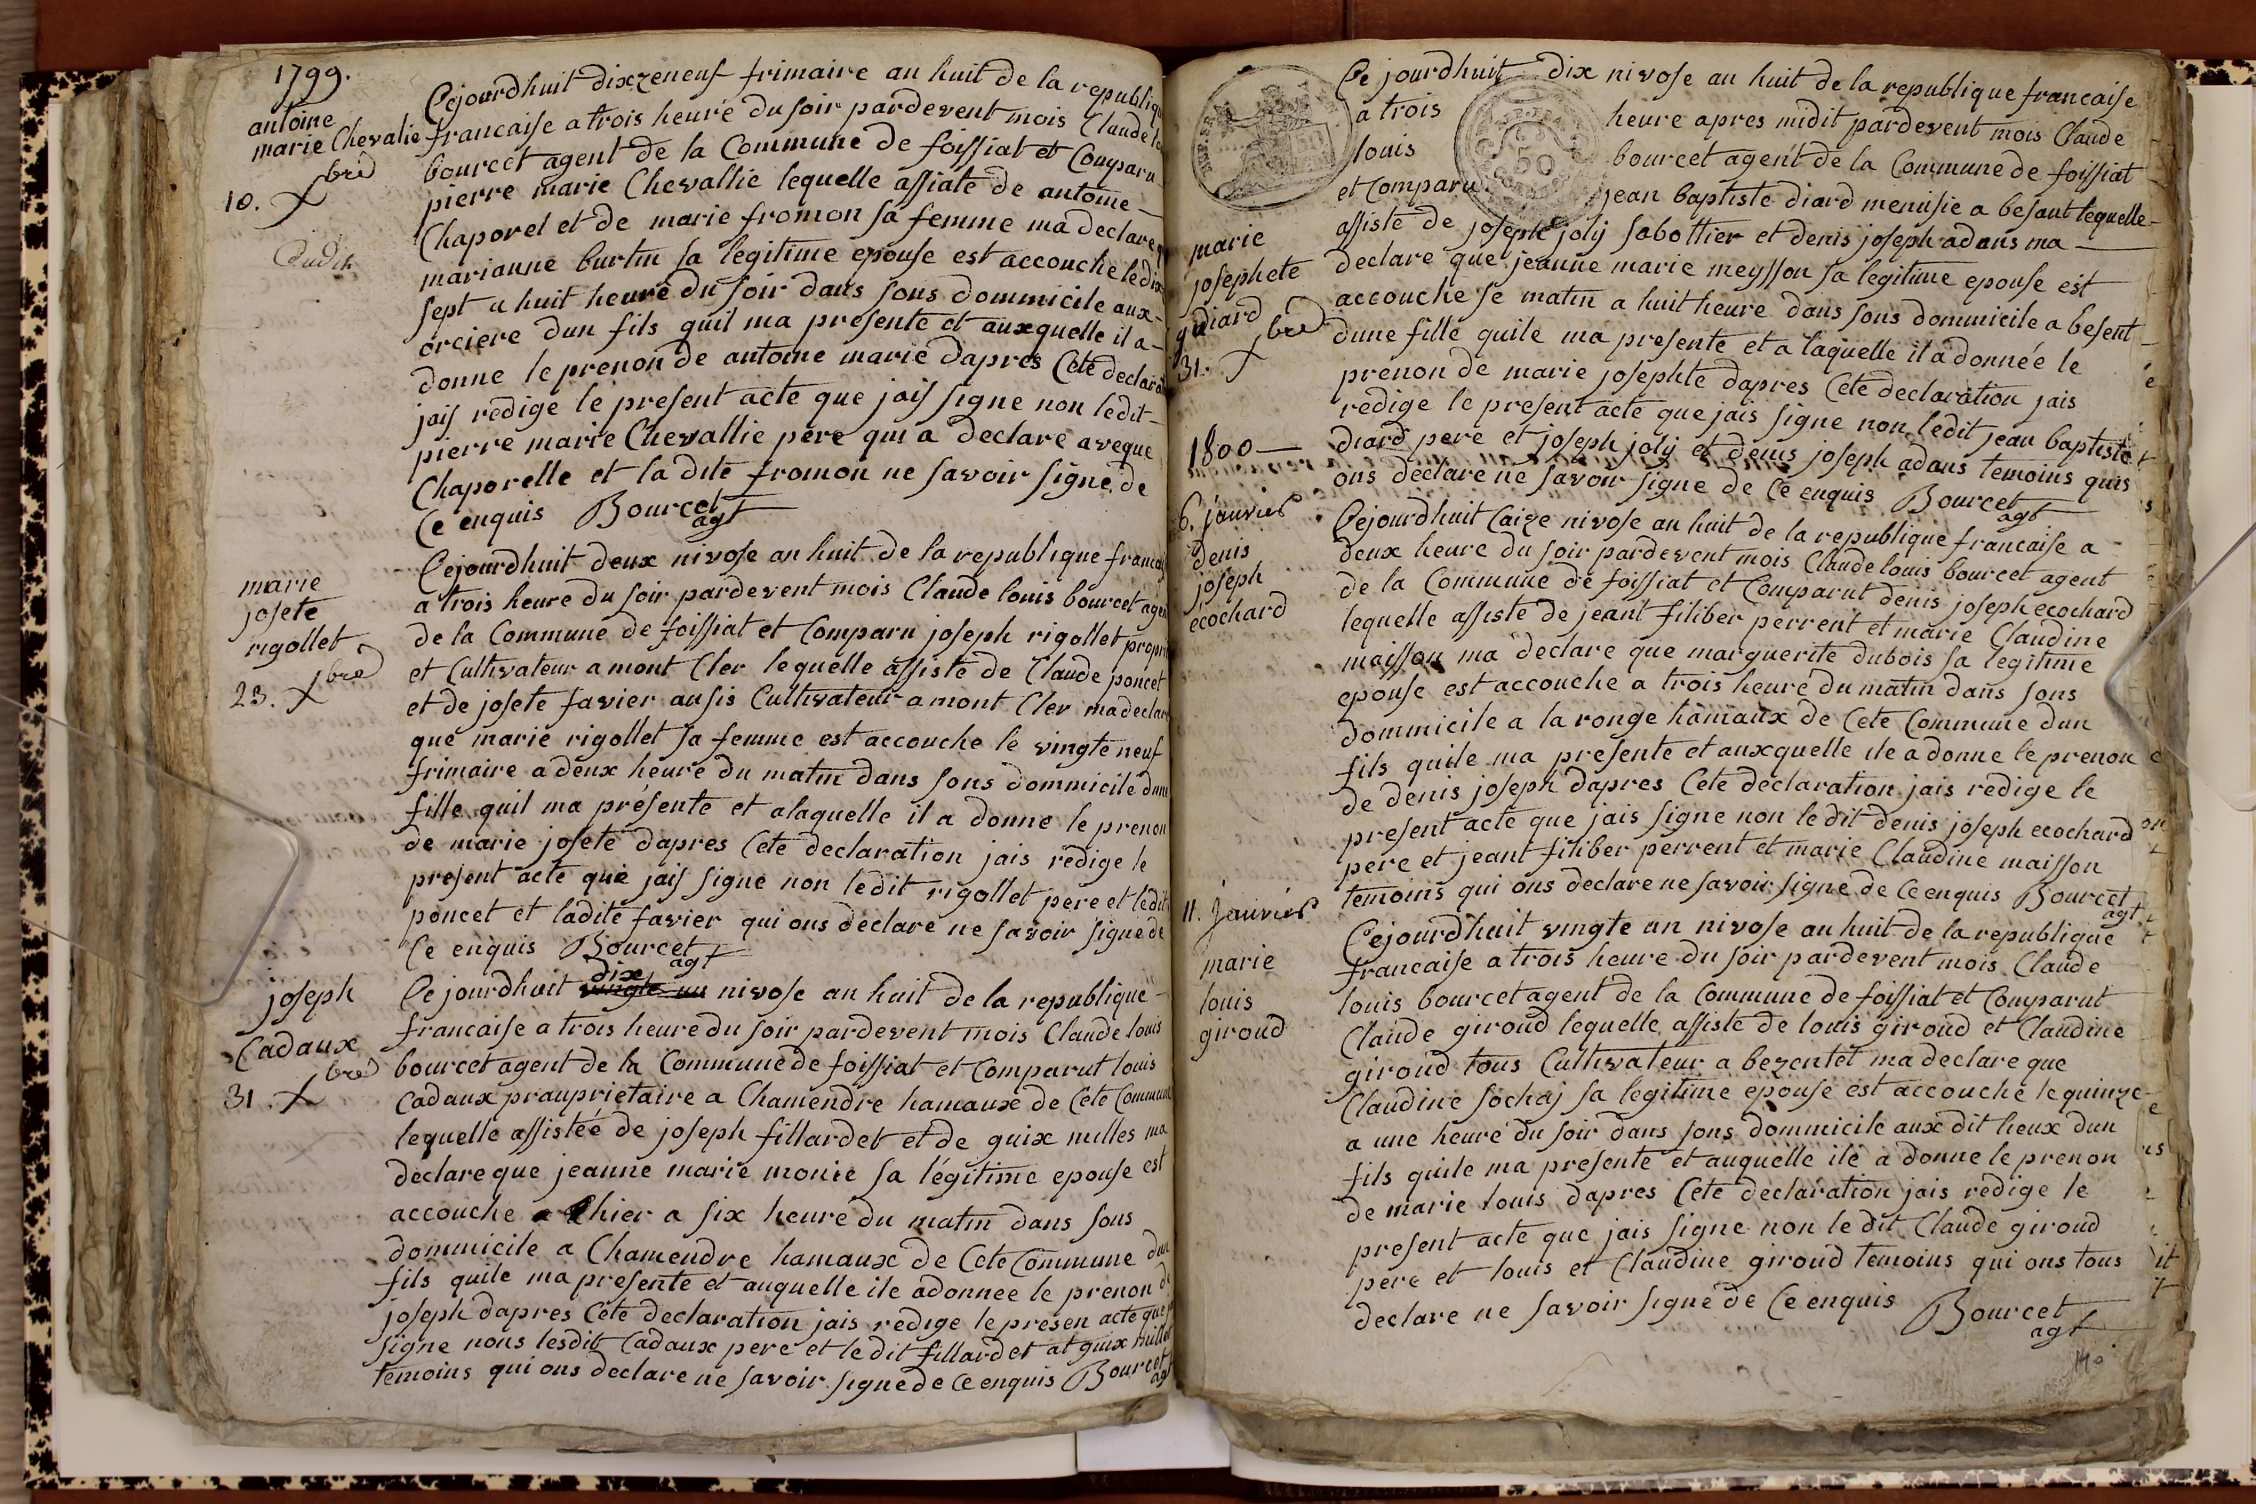 1799.
antoine
marie Chevalie
10. Xbre
Cejourdhuit dixzeneuf frimaire an huit de la republiq
francaise a trois heure du soir pardevent mois Claude
bourcet agent de la Commune de foissiat et Comparu
pierre marie Chevallie lequelle assiste de antoine
Chaporel et de marie fromon sa femme ma declare
marianne burtin sa legitime epouse est accouche le dix
sept a huit heure du soir dans sons dommicile aux
orciere dun fils quil ma presente et auxquelle il a
donne le prenon de antoine marie dapres Cete declara
jais redige le present acte que jais signe non ledit
pierre marie Chevallie pere qui a declare aveque
Chaporelle et la dite fromon ne savoir signe de
Ce enquis Bourcet
agt
marie
josete
rigollet
23. Xbre
Cejourdhuit deux nivose an huit de la republique franca
a trois heure du soir pardevent mois Claude louis bourcet agen
de la Commune de foissiat et Comparu joseph rigollet propri
et Cultivateur a mont Cler lequelle assiste de Claude poncet
et de josete favier ausis Cultivateur a mont Cler ma declar
que marie rigollet sa femme est accouche le vingte neuf
frimaire a deux heure du matin dans sons dommicile dune
fille quil ma présente et alaquelle il a donne le prenon
de marie josete dapres Cete declaration jais redige le
present acte que jais signe non ledit rigollet pere et ledit
poncet et ladite favier qui ons declare ne savoir signe de
Ce enquis Bourcet
agt
joseph
Cadaux
31. Xbre
dix
Ce jourdhuit vingte un nivose an huit de la republique
francaise a trois heure du soir pardevent mois Claude louis
bourcet agent de la Commune de foissiat et Comparut louis
Cadaux praupriétaire a Chamendre hamaux de Cete Commune
lequelle assistée de joseph fillardet et de guix milles ma
declare que jeanne marie monie sa légitime epouse est
accouche hier a six heure du matin dans sons
dommicile a Chamendre hamaux de Cete Commune dun
fils quile ma presente et auquelle ile adonnee le prenon de
joseph dapres Cete declaration jais redige le presen acte que
signe nons lesdit Cadaux pere et le dit fillardet at guix mille
temoins qui ons declare ne savoir signe de Ce enquis Bourcet
agt
Ce jourdhuit dix nivose an huit de la republique francaise
a trois heure apres midit pardevent mois Claude
louis bourcet agent de la Commune de foissiat
et Comparu jean baptiste diard menusie a besant lequelle
marie
josephete
diard
31. Xbre
50
assiste de joseph joly sabottier et denis joseph adans ma
declare que jeanne marie meysson sa legitime epouse est
accouche se matin a huit heure dans sons dommicile a besent
dune fille quile ma presente et a laquelle il a donnée le
prenon de marie josephte dapres Cete declaration jais
redige le present acte que jais signe non ledit jean baptiste
diard pere et joseph joly et denis joseph adans temoins quis
ons declare ne savoir signe de Ce enquis Bourcet
agt
1800
6. janvier
denis
joseph
ecochard
Cejourdhuit Caize nivose an huit de la republique francaise a
deux heure du soir pardevent mois Claude louis bourcet agent
de la Commune de foissiat et Comparut denis joseph ecochard
lequelle assiste de jeant filiber perrent et marie Claudine
maisson ma declare que marguerite dubois sa legitime
epouse est accouche a trois heure du matin dans sons
dommicile a la ronge hamaux de Cete Commune dun
fils quile ma presente et auxquelle ile a donne le prenon
de denis joseph dapres Cete declaration jais redige le
present acte que jais signe non le dit denis joseph ecochard
pere et jeant filiber perrent et marie Claudine maisson
temoins qui ons declare ne savoir signe de Ce enquis Bourcet
agt
11. Janvier
marie
louis
giroud
Cejourdhuit vingte un nivose an huit de la republique
francaise a trois heure du soir pardevent mois Claude
louis bourcet agent de la Commune de foissiat et Comparut
Claude giroud lequelle assiste de louis giroud et Claudine
giroud tous Cultivateur a bezentet ma declare que
Claudine sochaj sa legitime epouse est accouche le quinze
a une heure du soir dans sons dommicile aux dit lieux dun
fils quile ma presente et auquelle ile a donne le prenon
de marie louis dapres Cete declaration jais redige le
present acte que jais signe non le dit Claude giroud
pere et louis et Claudine giroud temoins qui ons tous
declare ne savoir signe de Ce enquis Bourcet
agt